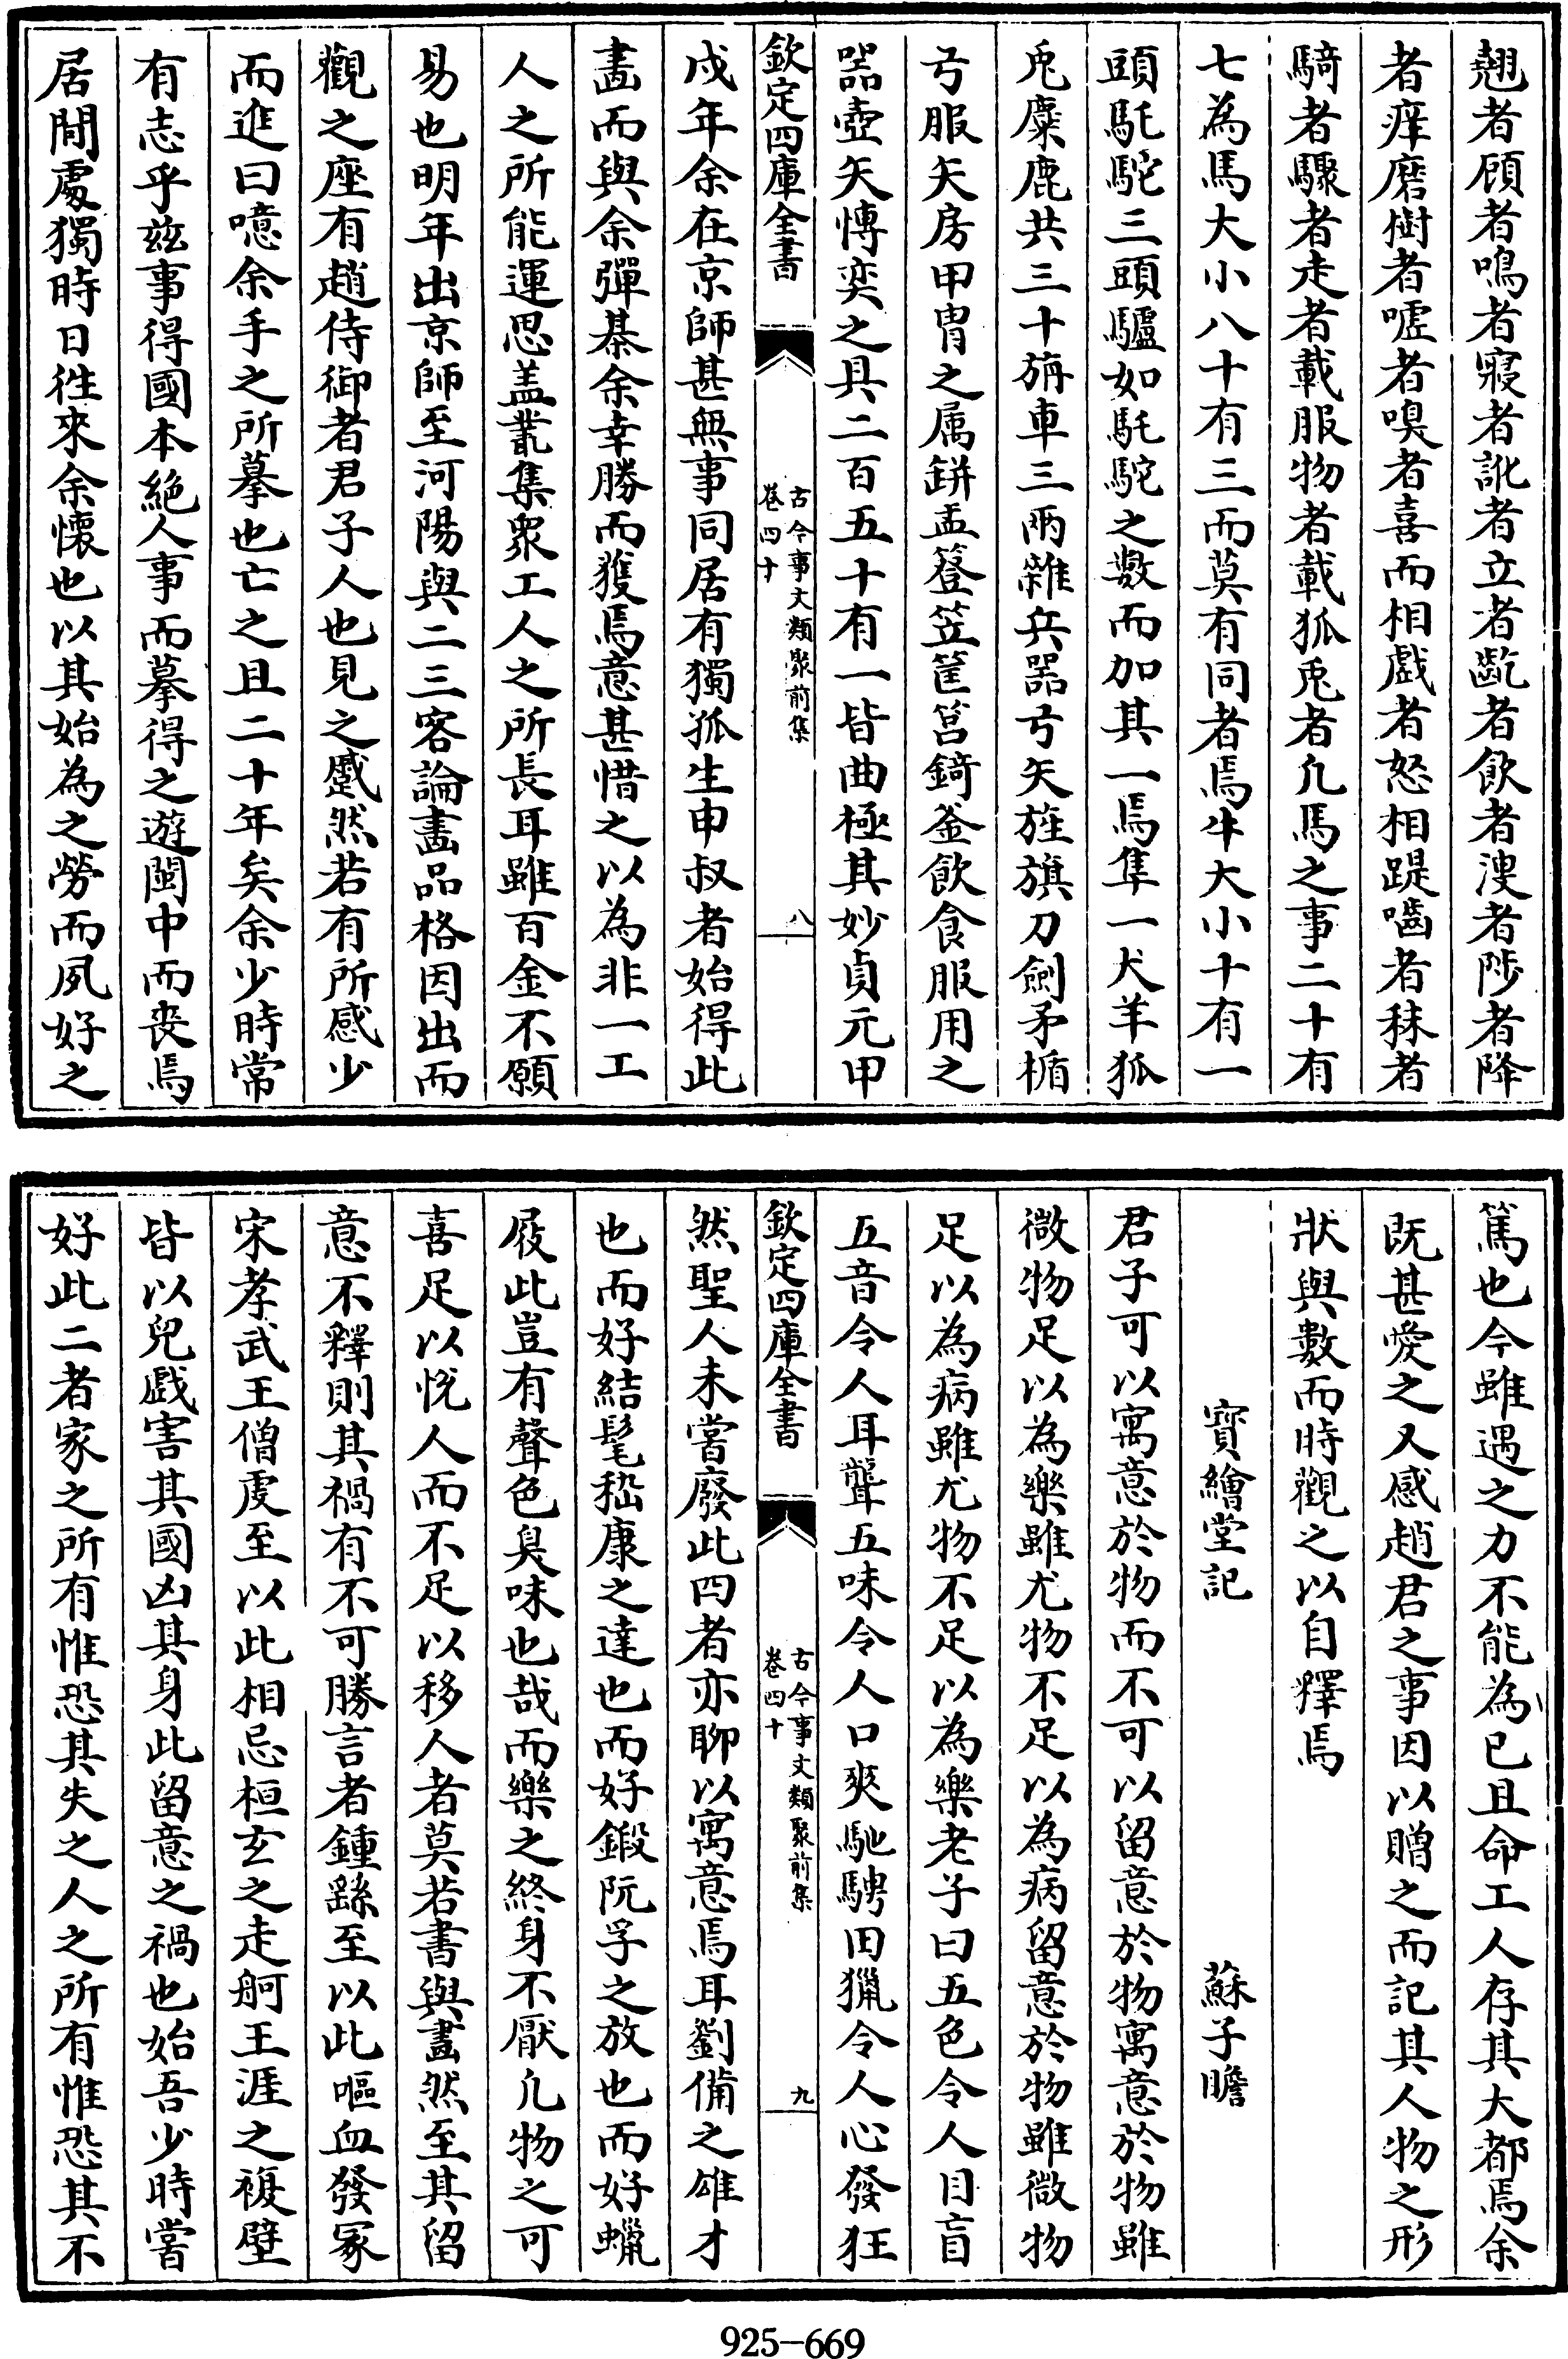 翹者顧者鳴者寢者訛者立者齕者飲者溲者陟者降
者痒磨樹者噓者嗅者喜而相戲者怒相踶嚙者秣者
騎者驟者走者載服物者載狐兎者凡馬之事二十有
七為馬大小八十有三而莫有同者焉牛大小十有一
頭馲駝三頭驢如馲駝之數而加其一焉隼一犬羊狐
兎麋鹿共三十旃車三兩雜兵器弓矢旌旗刀劍矛楯
弓服矢房甲胄之属缾盂簦笠筐筥錡釜飲食服用之
器壺矢愽奕之具二百五十有一皆曲極其妙貞元甲
欽定四庫全書 古今事文類聚前集卷四十 八
戌年余在京師甚無事同居有獨狐生申叔者始得此
畵而與余彈棊余幸勝而獲焉意甚惜之以為非一工
人之所能運思盖藂集衆工人之所長耳雖百金不願
易也明年出京師至河陽與二三客論畵品格因出而
觀之座有趙侍御者君子人也見之慼然若有所感少
而進曰噫余手之所摹也亡之且二十年矣余少時常
有志乎茲事得國本絶人事而摹得之遊閩中而喪焉
居閒處獨時日徃來余懷也以其始為之勞而夙好之
篤也今雖遇之力不能為已且命工人存其大都焉余
既甚愛之又感趙君之事因以贈之而記其人物之形
狀與數而時觀之以自釋焉
寳繪堂記 蘇子瞻
君子可以寓意於物而不可以留意於物寓意於物雖
微物足以為樂雖尤物不足以為病留意於物雖微物
足以為病雖尤物不足以為樂老子曰五色令人目盲
五音令人耳聾五味令人口爽馳騁田獵令人心發狂
欽定四庫全書 古今事文類聚前集卷四十 九
然聖人未嘗廢此四者亦聊以寓意焉耳劉備之雄才
也而好結髦嵇康之達也而好鍛阮孚之放也而好蠟
屐此豈有聲色臭味也哉而樂之終身不厭凡物之可
喜足以悅人而不足以移人者莫若書與畫然至其留
意不釋則其禍有不可勝言者鍾繇至以此嘔血發冢
宋孝武王僧虔至以此相忌桓玄之走舸王涯之複壁
皆以兒戲害其國凶其身此留意之禍也始吾少時嘗
好此二者家之所有惟恐其失之人之所有惟恐其不
925-669